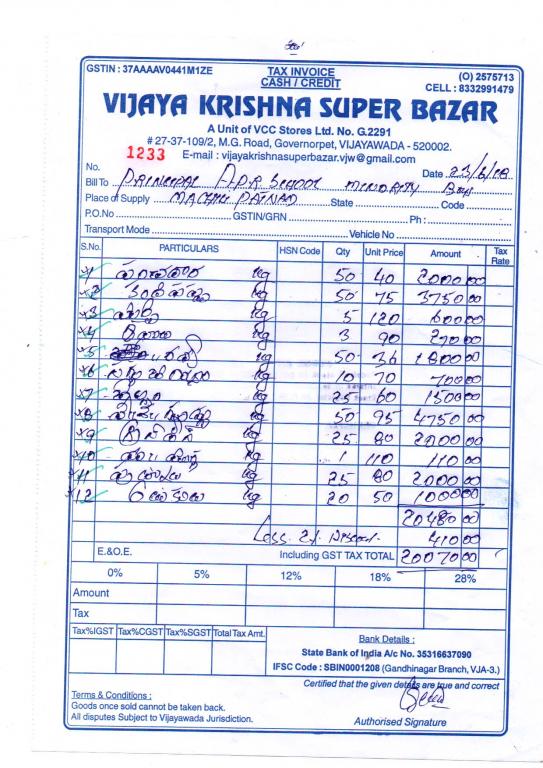 GSTIN : 37AAAAV0441M1ZE
TAX INVOICE
CASH / CREDIT
(O) 2575713
CELL : 8332991479
VIJAYA KRISHNA SUPER BAZAR
A Unit of VCC Stores Ltd. No. G.2291
# 27-37-109/2, M.G. Road, Governorpet, VIJAYAWADA - 520002.
1233 E-mail : vijayakrishnasuperbazar.vjw@gmail.com
No. Date 23/6/18
Bill To PRINCIPAL A.P.R SCHOOL MINORITY Boys
Place of Supply MACHILIPATNAM State Code
P.O.No GSTIN/GRN Ph :
Transport Mode Vehicle No
S.No. PARTICULARS HSN Code Qty Unit Price Amount Tax Rate
1 kg 50 40 2000 00
2 kg 50 75 3750 00
3 kg 5 120 600 00
4 kg 3 90 270 00
5 kg 50 36 1800 00
6 kg 10 70 700 00
7 kg 25 60 1500 00
8 kg 50 95 4750 00
9 kg 25 80 2000 00
10 kg 1 110 110 00
11 kg 25 80 2000 00
12 kg 20 50 1000 00
20480 00
Less 2% Discount 410 00
E.&O.E. Including GST TAX TOTAL 20070 00
0% 5% 12% 18% 28%
Amount
Tax
Tax%IGST Tax%CGST Tax%SGST Total Tax Amt.
Bank Details :
State Bank of India A/c No. 35316637090
IFSC Code : SBIN0001208 (Gandhinagar Branch, VJA-3.)
Certified that the given details are true and correct
Terms & Conditions :
Goods once sold cannot be taken back.
All disputes Subject to Vijayawada Jurisdiction.
Authorised Signature